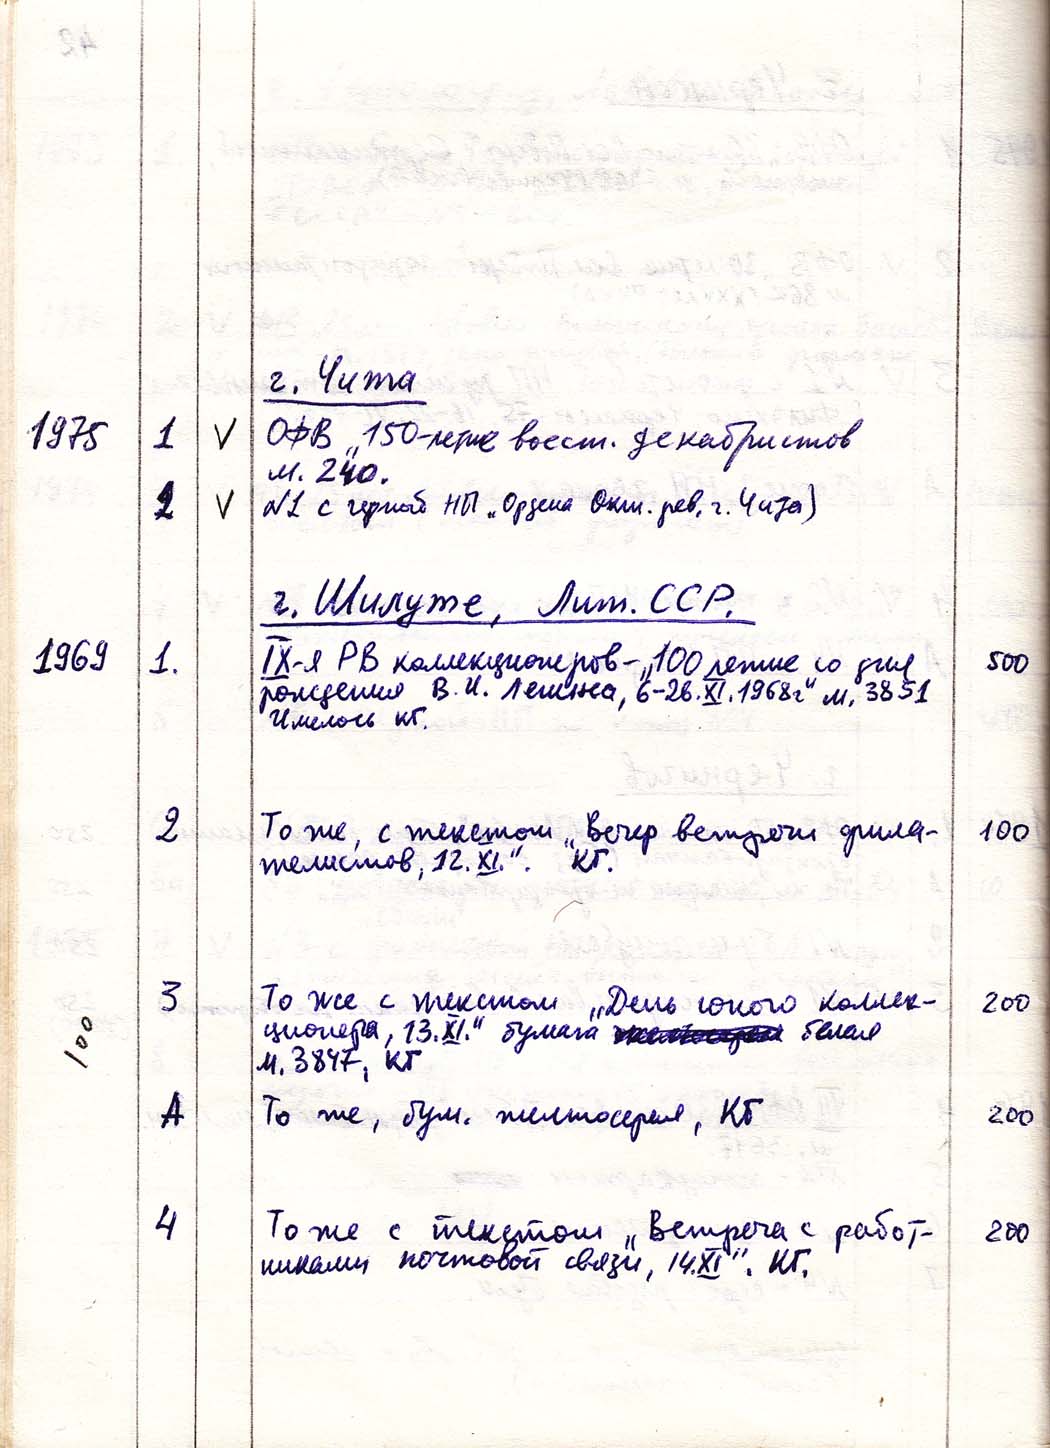 г. Чита
1975 1 V ОФВ „150-летие восст. декабристов
м. 240.
2 V №1 с черной НП „Ордена Окт. рев. г. Чита)
г. Шилуте, Лит. ССР.
1969 1. IX-я РВ коллекционеров-„100 летие со дня 500
рождения В.И. Ленина, 6-26.XI.1968г" м. 3851
Имелось КГ.
2 То же, с текстом „Вечер встречи фила- 100
телистов, 12.XI.". КГ.
3 То же с текстом „День юного коллек- 200
ционера, 13.XI." бумага белая
100
м. 3847, КГ
А То же, бум. желтосерая, КГ 200
4 То же с текстом „Встреча с работ- 200
никами почтовой связи, 14.XI". КГ.